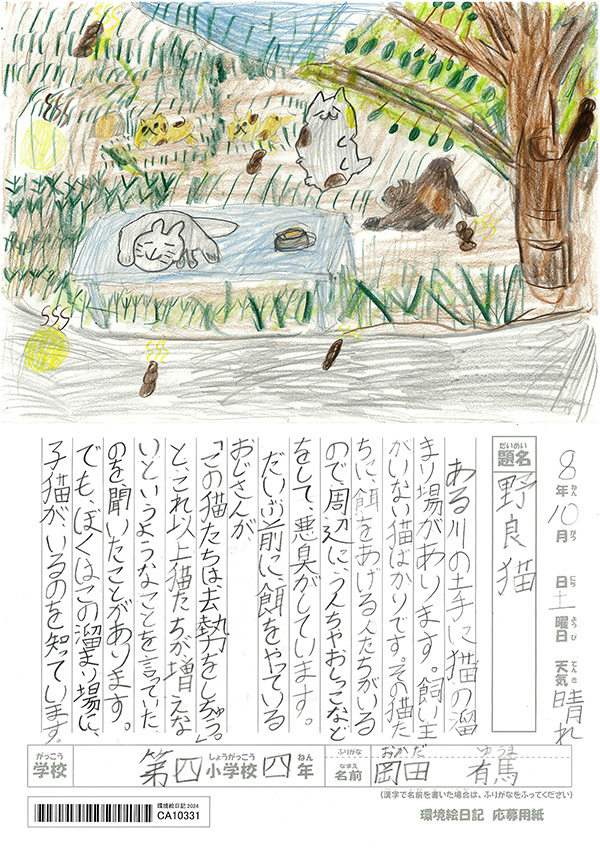 8年10月 日土曜日 天気 晴れ
ねん がつ にち ようび てんき
だいめい
題名 野良猫
ある川の土手に猫の溜
まり場があります。飼い主
がいない猫ばかりです。その猫た
ちに、餌をあげる人たちがいる
ので、周辺に、うんちやおしっこなど
をして、悪臭がしています。
だいぶ前に、餌をやっている
おじさんが、
「この猫たちは去勢をしちゃう。」
と、これ以上猫たちが増えな
いというようなことを言っていた
のを、聞いたことがあります。
でも、ぼくはこの溜まり場に、
子猫が、いるのを知っています。
がっこう しょうがっこう ねん
学校 第四小学校四年
ふりがな おかだ ゆうま
なまえ
名前 岡田 有馬
(漢字で名前を書いた場合は、ふりがなをふってください)
環境絵日記 応募用紙
環境絵日記 2024
CA10331